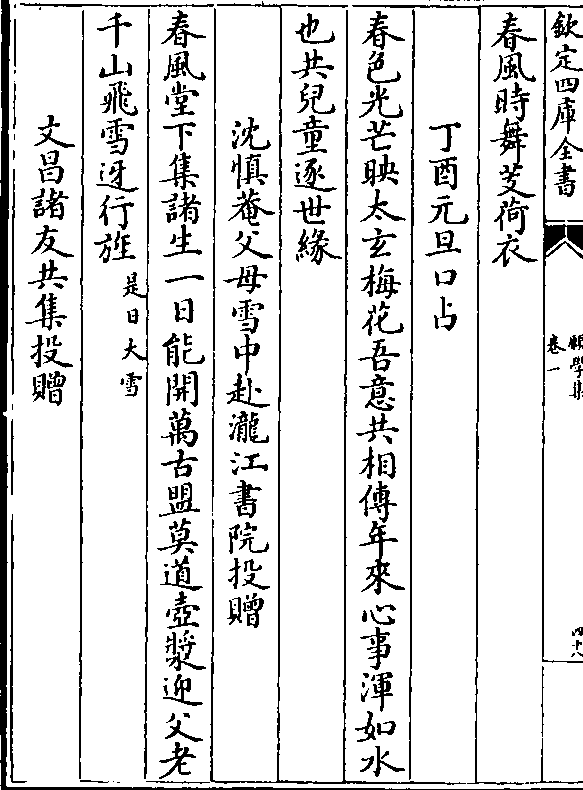 欽定四庫全書
願學集
卷一
四十八
春風時舞芰荷衣
丁酉元旦口占
春色光芒映太玄梅花吾意共相傳年來心事渾如水
也共兒童逐世緣
沈慎菴父母雪中赴瀧江書院投贈
春風堂下集諸生一日能開萬古盟莫道壺漿迎父老
千山飛雪迓行旌是日大雪
文昌諸友共集投贈